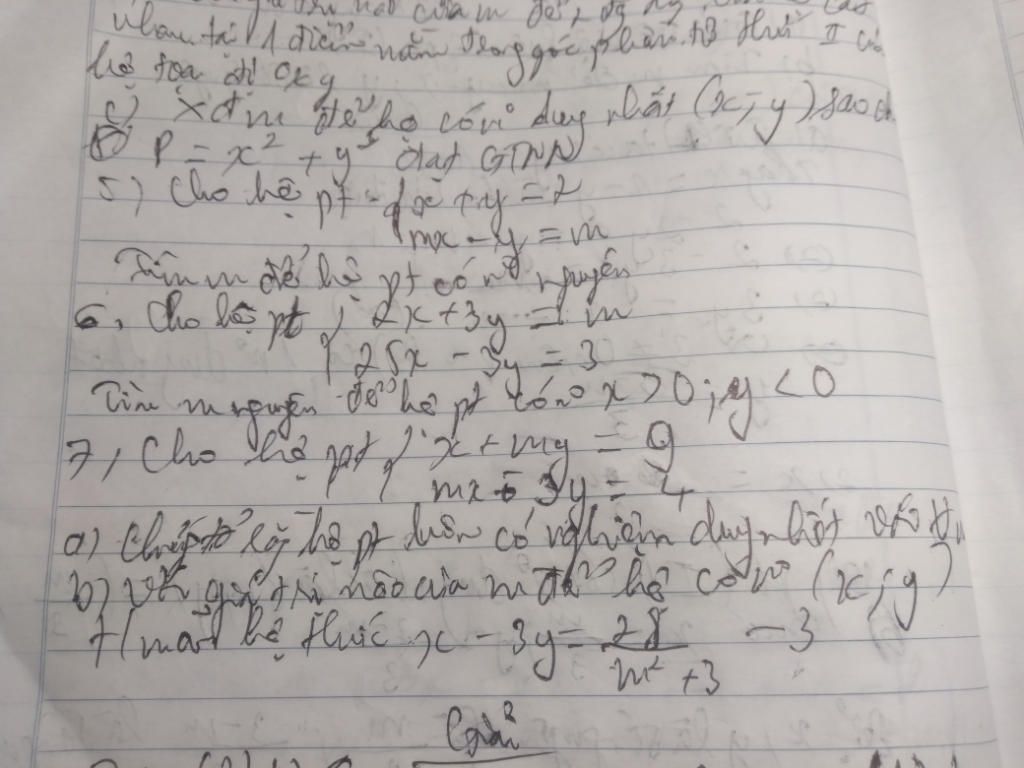 nhau tại 1 điểm nằm trong góc phần tử thứ II của
hệ tọa độ Oxy
c) Xđ m để hệ có n⁰ duy nhất (x; y) sao
P = x² + y² đạt GTNN
5) Cho hệ pt { x + y = 2
mx - y = m
Tìm m để hệ pt có n⁰ nguyên
6, Cho hệ pt { 2x + 3y = m
25x - 3y = 3
Tìm m nguyên để hệ pt có n⁰ x > 0 ; y < 0
7, Cho hệ pt { x + my = 9
mx - 3y = 4
a) rằng hệ pt luôn có nghiệm duy nhất với
b) Với giá trị nào của m để hệ có n⁰ (x; y)
t/mãn hệ thức x - 3y = 28/(m² + 3) - 3
Giải